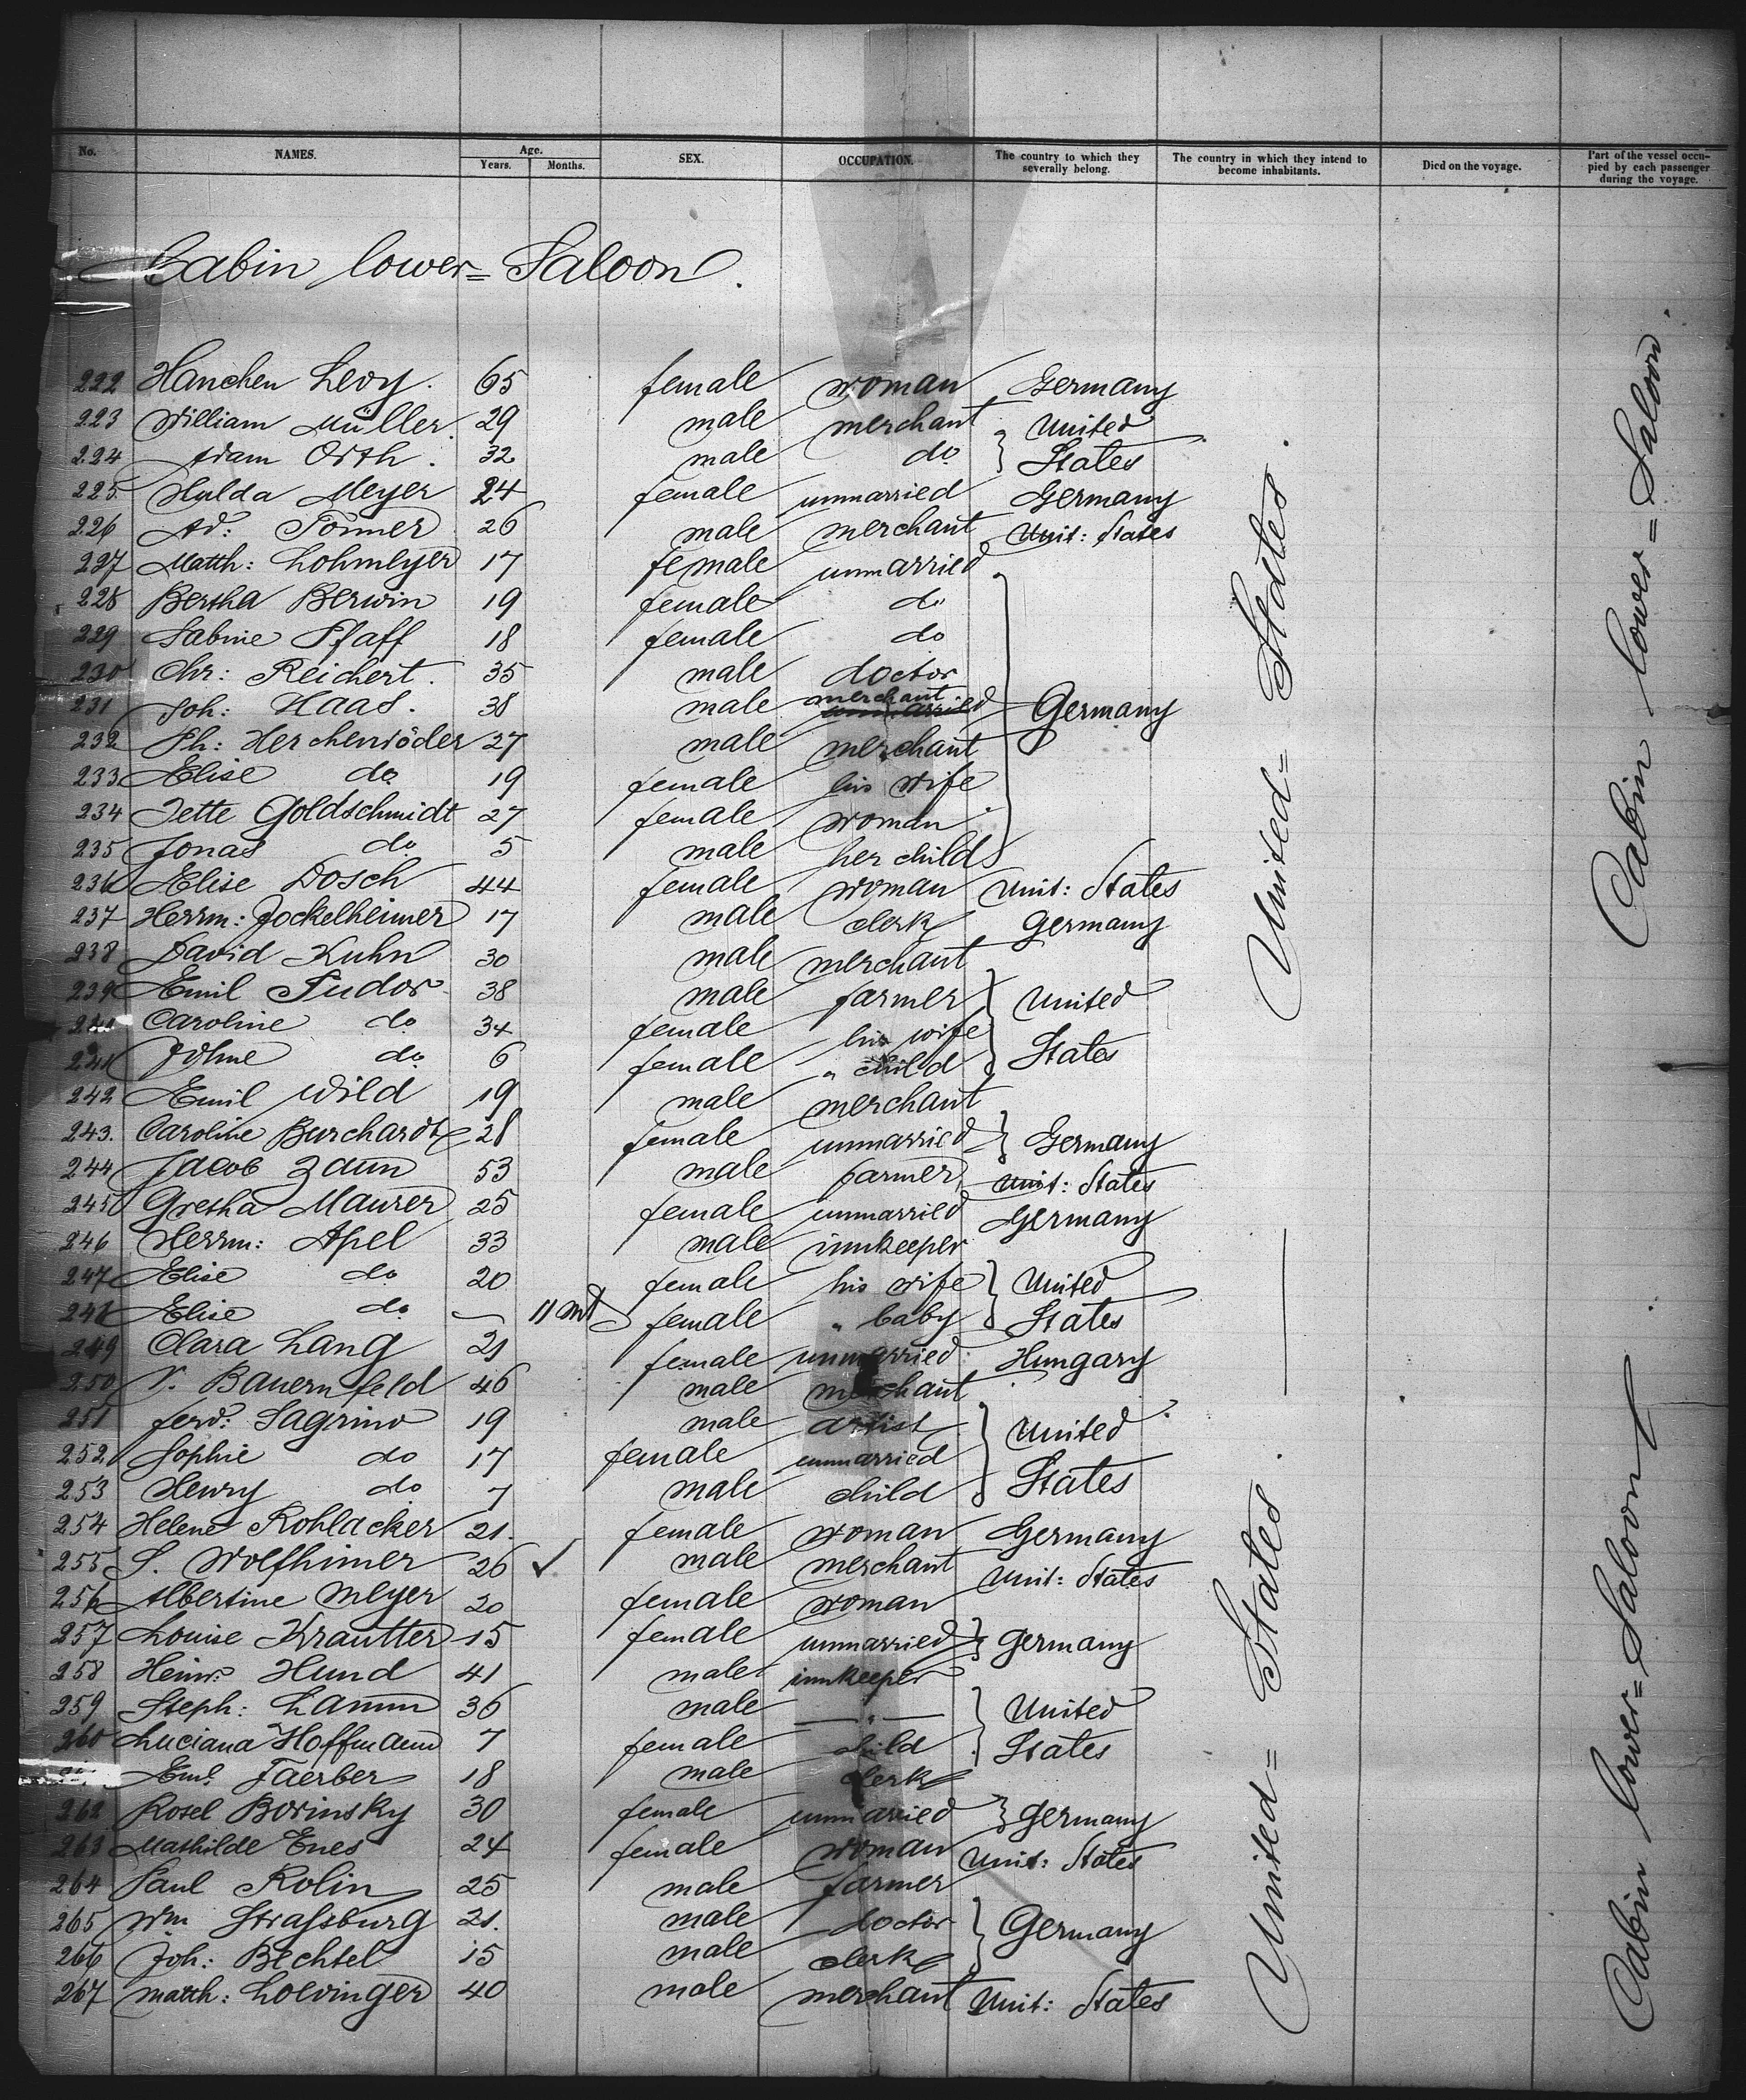 No. NAMES. Age. Years. Months. SEX. OCCUPATION. The country to which they severally belong. The country in which they intend to become inhabitants. Died on the voyage. Part of the vessel occupied by each passenger during the voyage.
Cabin lower= Saloon.
222 Hanchen Levy. 65 female woman Germany
223 William Müller. 29 male merchant United
224 Adam Orth. 32 male do States
225. Hulda Meyer 24 female unmarried Germany
226 Ad: Tönner 26 male merchant Unit: States
227 Matth: Lohmeyer 17 female unmarried
228 Bertha Berwin 19 female do
229 Sabine Pfaff 18 female do
230 Chr: Reichert. 35 male doctor
231 Joh: Haas. 38 male merchant Germany
232 Ph: Herchenröder 27 male merchant
233 Elise do 19 female his wife
234 Jette Goldschmidt 27 female woman
235 Jonas do 5 male her child
236 Elise Dosch 44 female woman Unit: States
237 Herrm: Jockelheimer 17 male clerk Germany
238 David Kuhn 30 male merchant
239 Emil Tudor 38 male farmer United
240 Caroline do 34 female his wife
241 do 6 female " child States
242 Emil Wild 19 male merchant
243. Caroline Burchardt 28 female unmarried Germany
244 Jacob Zaun 53 male farmer Unit: States
245 Gretha Maurer 25 female unmarried Germany
246 Herrm: Apel 33 male innkeeper
247 Elise do 20 female his wife United
248 Elise do — 11 female " baby States
249 Clara Lang 21 female unmarried Hungary
250 V. Bauernfeld 46 male merchant
251 Ferd: Sagrino 19 male artist United
252 Sophie do 17 female unmarried
253 Henry do 7 male child States
254 Helene Rohlacker 21. female woman Germany
255 S. Wolfhimer 26 ✓ male merchant Unit: States
256 Albertine Meyer 30 female woman
257 Louise Krautter 15 female unmarried Germany
258 Heinr: Hund 41 male innkeeper
259 Steph: Lamm 36 male — " — United
260 Luciana Hoffmann 7 female child States
Emil Faerber 18 male clerk
262 Rosel Borinsky 30 female unmarried Germany
263 Mathilde Enes 24 female woman Unit: States
264 Paul Rolin 25 male farmer
265 Wm Strassburg 21. male doctor Germany
266 Joh: Bechtel 15 male clerk
267 Matth: Loevinger 40 male merchant Unit: States
United= States.
United= States.
Cabin lower= Saloon.
Cabin lower= Saloon